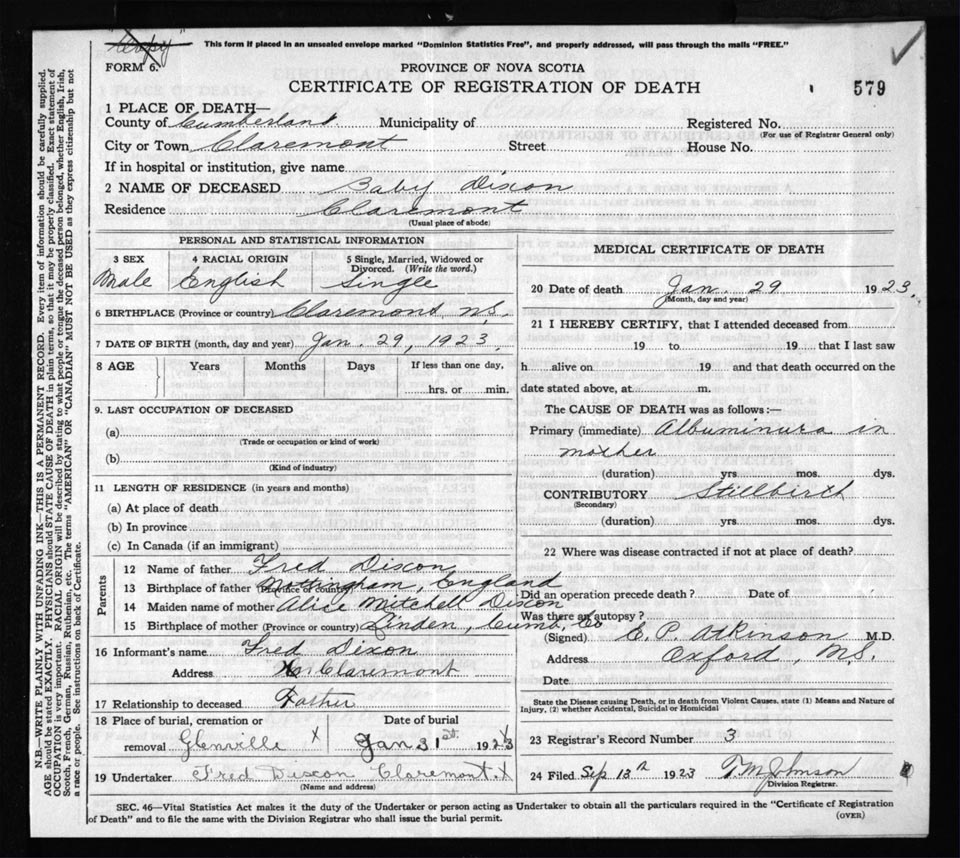 "Copy" This form if placed in an unsealed envelope marked "Dominion Statistics Free", and properly addressed, will pass through the mails "FREE."
FORM 6. PROVINCE OF NOVA SCOTIA
CERTIFICATE OF REGISTRATION OF DEATH 579
1 PLACE OF DEATH—
County of Cumberland Municipality of Registered No.
(For use of Registrar General only)
City or Town Claremont Street House No.
If in hospital or institution, give name
2 NAME OF DECEASED Baby Dixon
Residence Claremont
(Usual place of abode)
PERSONAL AND STATISTICAL INFORMATION
3 SEX 4 RACIAL ORIGIN 5 Single, Married, Widowed or Divorced. (Write the word.)
Male English Single
6 BIRTHPLACE (Province or country) Claremont N.S.
7 DATE OF BIRTH (month, day and year) Jan. 29, 1923
8 AGE Years Months Days If less than one day,
hrs. or min.
9. LAST OCCUPATION OF DECEASED
(a)
(Trade or occupation or kind of work)
(b)
(Kind of industry)
11 LENGTH OF RESIDENCE (in years and months)
(a) At place of death
(b) In province
(c) In Canada (if an immigrant)
Parents
12 Name of father Fred Dixon
13 Birthplace of father (Province or country) Nottingham, England
14 Maiden name of mother Alice Mitchell Dixon
15 Birthplace of mother (Province or country) Linden, Cumb. Co
16 Informant's name Fred Dixon
Address Claremont
17 Relationship to deceased Father
18 Place of burial, cremation or removal Glenville X Date of burial Jan 31st 1923 X
19 Undertaker Fred Dixon Claremont. X
(Name and address)
MEDICAL CERTIFICATE OF DEATH
20 Date of death Jan. 29 1923.
(Month, day and year)
21 I HEREBY CERTIFY, that I attended deceased from
19 to 19 that I last saw
h alive on 19 and that death occurred on the
date stated above, at m.
The CAUSE OF DEATH was as follows:—
Primary (immediate) Albuminura in
mother
(duration) yrs. mos. dys.
CONTRIBUTORY Stillbirth
(Secondary)
(duration) yrs. mos. dys.
22 Where was disease contracted if not at place of death?
Did an operation precede death? Date of
Was there an autopsy?
(Signed) C. P. Atkinson M.D.
Address Oxford, N.S.
Date
State the Disease causing Death, or in death from Violent Causes, state (1) Means and Nature of
Injury, (2) whether Accidental, Suicidal or Homicidal
23 Registrar's Record Number 3
24 Filed Sep 13th 1923 T M Johnson
Division Registrar.
SEC. 46—Vital Statistics Act makes it the duty of the Undertaker or person acting as Undertaker to obtain all the particulars required in the "Certificate of Registration
of Death" and to file the same with the Division Registrar who shall issue the burial permit. (OVER)
N.B.—WRITE PLAINLY WITH UNFADING INK—THIS IS A PERMANENT RECORD. Every item of information should be carefully supplied.
AGE should be stated EXACTLY. PHYSICIANS should STATE CAUSE OF DEATH in plain terms, so that it may be properly classified. Exact statement of
OCCUPATION is very important. RACIAL ORIGIN will be described by stating to what people or tongue the deceased person belonged, whether English, Irish,
Scotch, French, German, Russian, Ruthenian, etc. The terms "AMERICAN" OR "CANADIAN" MUST NOT BE USED as they express citizenship but not
a race or people. See instructions on back of Certificate.